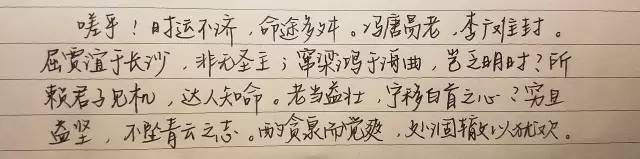 嗟乎！时运不济，命途多舛。冯唐易老，李广难封。
屈贾谊于长沙，非无圣主；窜梁鸿于海曲，岂乏明时？所
赖君子见机，达人知命。老当益壮，宁移白首之心？穷且
益坚，不坠青云之志。酌贪泉而觉爽，处涸辙以犹欢。